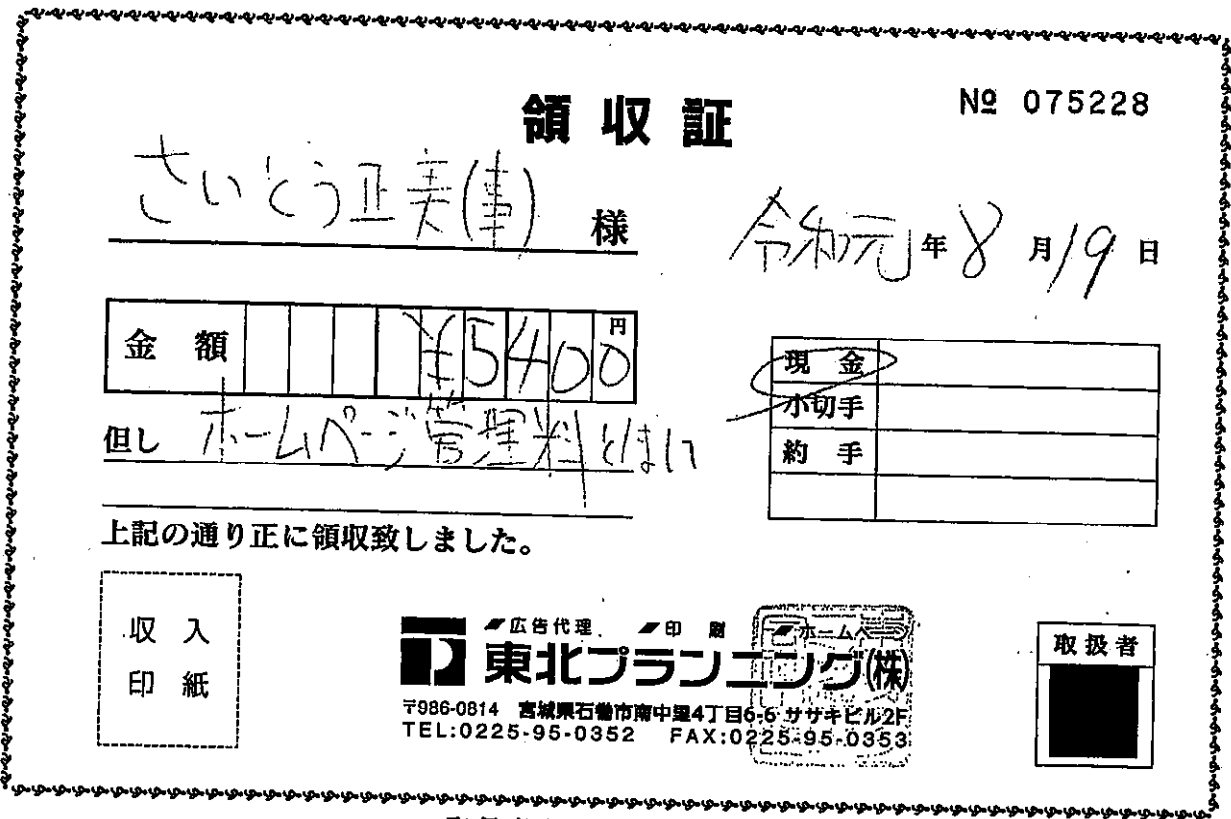 領収証
№ 075228
さいとう正美(事) 様
令和元年8月19日
金額 ¥5400円
但し ホームページ管理料として
上記の通り正に領収致しました。
現金
小切手
約手
収入
印紙
広告代理 印刷 ホームページ
東北プランニング(株)
〒986-0814 宮城県石巻市南中里4丁目6-6 ササキビル2F
TEL:0225-95-0352 FAX:0225-95-0353
取扱者